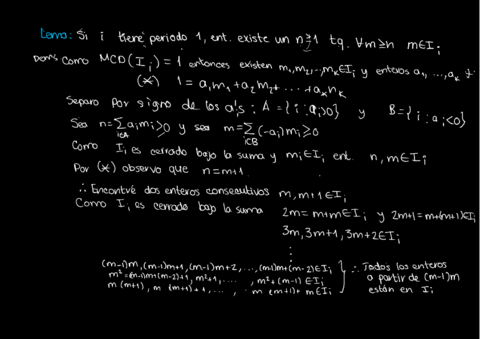 Lema: Si i tiene periodo 1, ent. existe un n≥1 tq. ∀m≥n m∈I_i
Dem: Como MCD(I_i)=1 entonces existen m_1,m_2,..,m_k∈I_i y enteros a_1,...,a_k
(*) 1 = a_1m_1+a_2m_2+ ... +a_kn_k
Separo por signo de los a_i's: A={i: a_i>0} y B={i: a_i<0}
Sea n=∑_{i∈A} a_im_i≥0 y sea m=∑_{i∈B}(-a_i)m_i≥0
Como I_i es cerrado bajo la suma y m_i∈I_i ent. n,m∈I_i
Por (*) observo que n=m+1.
∴ Encontré dos enteros consecutivos m,m+1∈I_i
Como I_i es cerrado bajo la suma 2m=m+m∈I_i y 2m+1=m+(m+1)∈I_i
3m,3m+1,3m+2∈I_i
⋮
(m-1)m,(m-1)m+1,(m-1)m+2,...,(m-1)m+(m-2)∈I_i
m²=(m-1)m+(m-2)+1, m²+1,..., m²+(m-1)∈I_i
m(m+1), m(m+1)+1,..., m(m+1)+m∈I_i
∴ Todos los enteros
a partir de (m-1)m
están en I_i